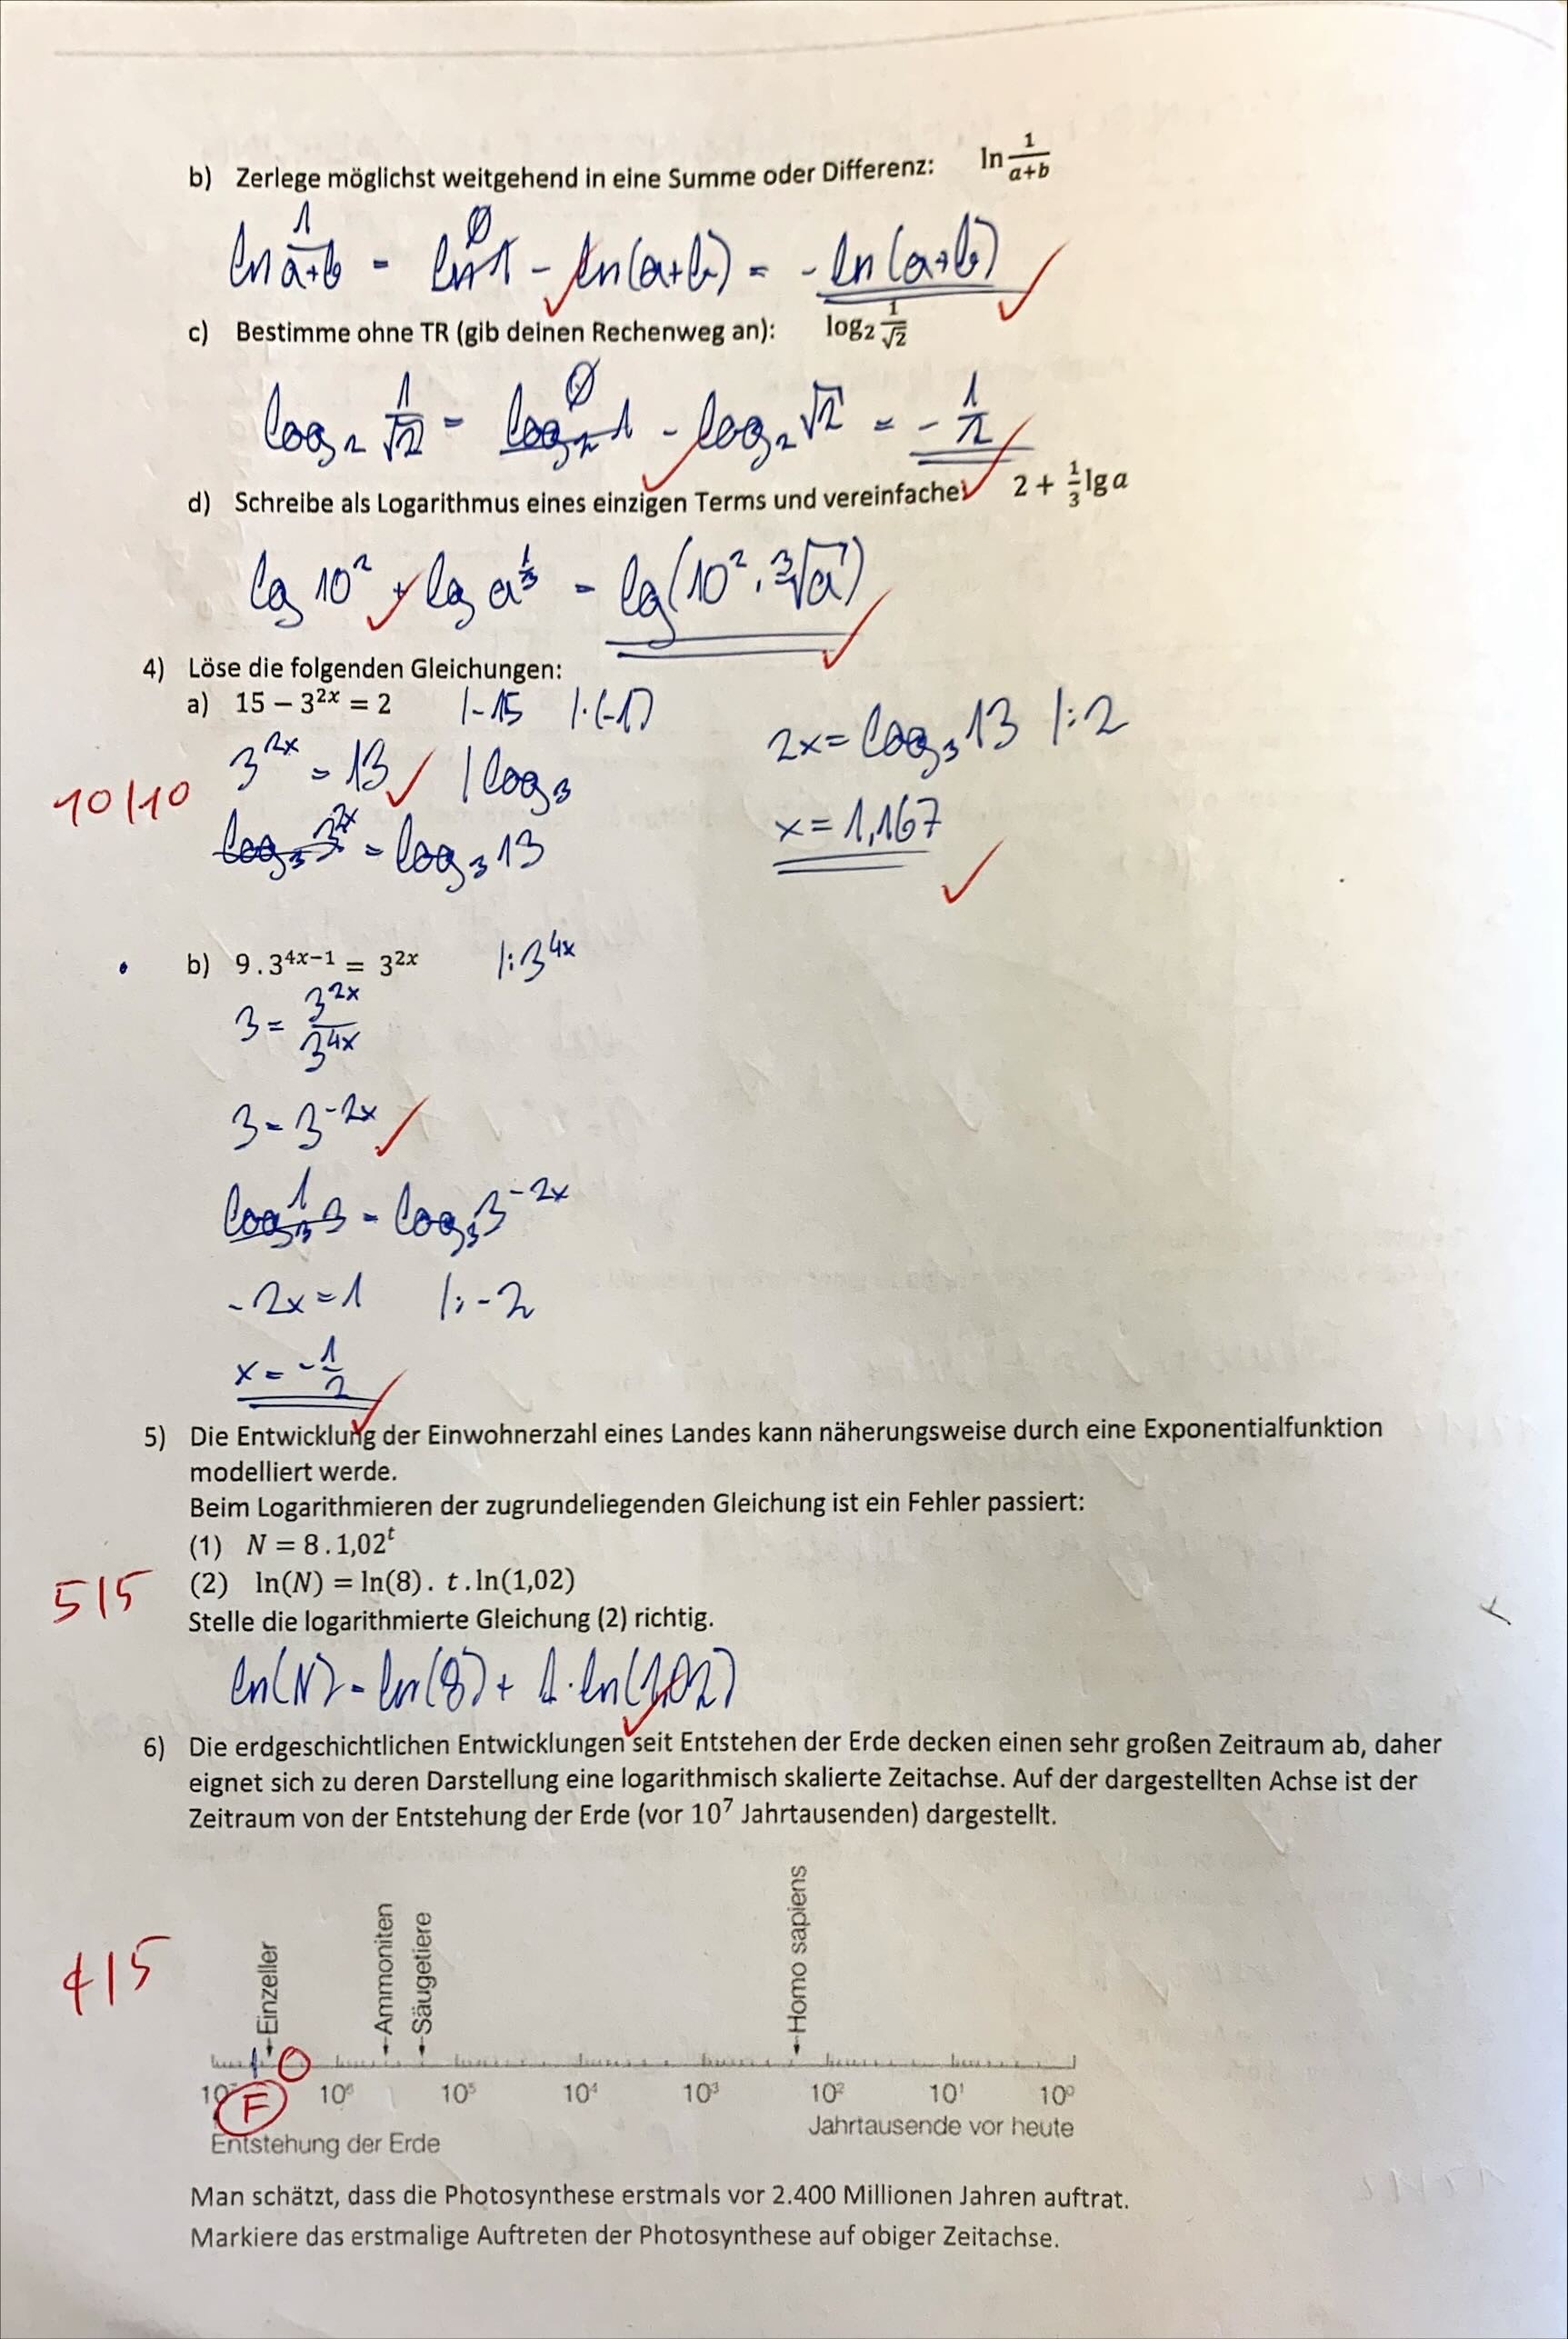 b) Zerlege möglichst weitgehend in eine Summe oder Differenz: ln 1/(a+b)
ln 1/(a+b) = ln 1 0 - ln(a+b) = -ln(a+b) ✓
c) Bestimme ohne TR (gib deinen Rechenweg an): log₂ 1/√2
log₂ 1/√2 = log₂ 1 0 - log₂ √2 = - 1/2 ✓
d) Schreibe als Logarithmus eines einzigen Terms und vereinfache: 2 + 1/3 lg a
lg 10² + lg a^(1/3) = lg(10² · ∛a) ✓
4) Löse die folgenden Gleichungen:
a) 15 – 3²ˣ = 2 |-15 |·(-1)
3²ˣ = 13 ✓ |log₃
10/10
log₃ 3²ˣ = log₃ 13
2x = log₃ 13 |:2
x = 1,167 ✓
b) 9 . 3⁴ˣ⁻¹ = 3²ˣ |:3⁴ˣ
3 = 3²ˣ/3⁴ˣ
3 = 3⁻²ˣ ✓
log₃ 3 1 = log₃ 3⁻²ˣ
-2x = 1 |:-2
x = - 1/2 ✓
5) Die Entwicklung der Einwohnerzahl eines Landes kann näherungsweise durch eine Exponentialfunktion
modelliert werde.
Beim Logarithmieren der zugrundeliegenden Gleichung ist ein Fehler passiert:
(1) N = 8 . 1,02ᵗ
5/5
(2) ln(N) = ln(8) . t . ln(1,02)
Stelle die logarithmierte Gleichung (2) richtig.
ln(N) = ln(8) + t · ln(1,02) ✓
6) Die erdgeschichtlichen Entwicklungen seit Entstehen der Erde decken einen sehr großen Zeitraum ab, daher
eignet sich zu deren Darstellung eine logarithmisch skalierte Zeitachse. Auf der dargestellten Achse ist der
Zeitraum von der Entstehung der Erde (vor 10⁷ Jahrtausenden) dargestellt.
4/5
Einzeller
Ammoniten
Säugetiere
Homo sapiens
10⁷ 10⁶ 10⁵ 10⁴ 10³ 10² 10¹ 10⁰
F
Jahrtausende vor heute
Entstehung der Erde
Man schätzt, dass die Photosynthese erstmals vor 2.400 Millionen Jahren auftrat.
Markiere das erstmalige Auftreten der Photosynthese auf obiger Zeitachse.